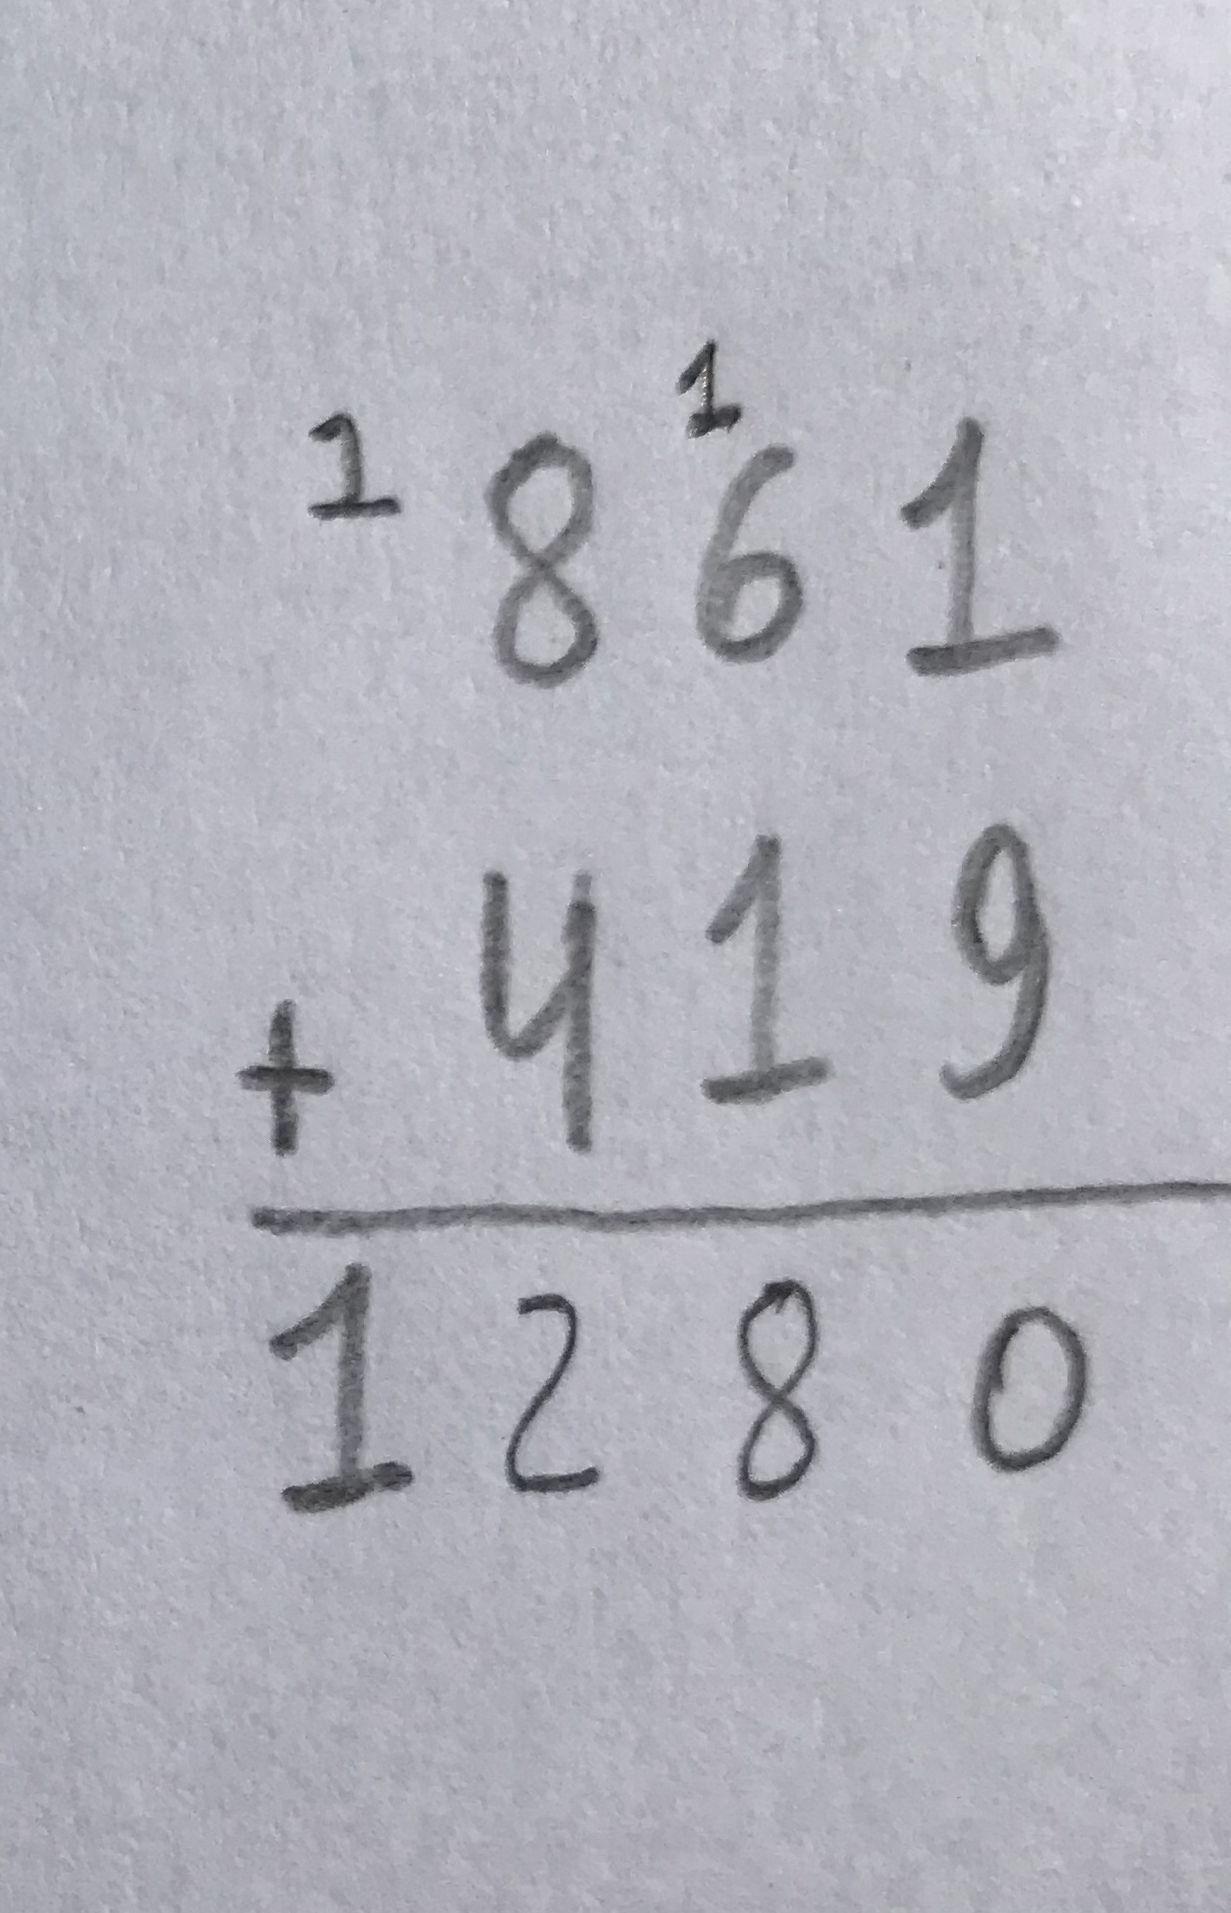 1 1
861
+ 419
1280